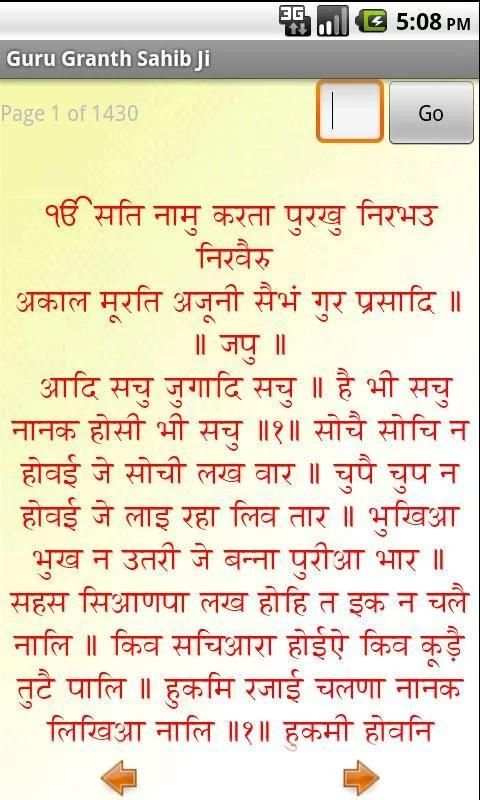 3G 5:08 PM
Guru Granth Sahib Ji
Page 1 of 1430
Go
ੴ सति नामु करता पुरखु निरभउ
निरवैरु
अकाल मूरति अजूनी सैभं गुर प्रसादि ॥
॥ जपु ॥
आदि सचु जुगादि सचु ॥ है भी सचु
नानक होसी भी सचु ॥१॥ सोचै सोचि न
होवई जे सोची लख वार ॥ चुपै चुप न
होवई जे लाइ रहा लिव तार ॥ भुखिआ
भुख न उतरी जे बन्ना पुरीआ भार ॥
सहस सिआणपा लख होहि त इक न चलै
नालि ॥ किव सचिआरा होईऐ किव कूड़ै
तुटै पालि ॥ हुकमि रजाई चलणा नानक
लिखिआ नालि ॥१॥ हुकमी होवनि